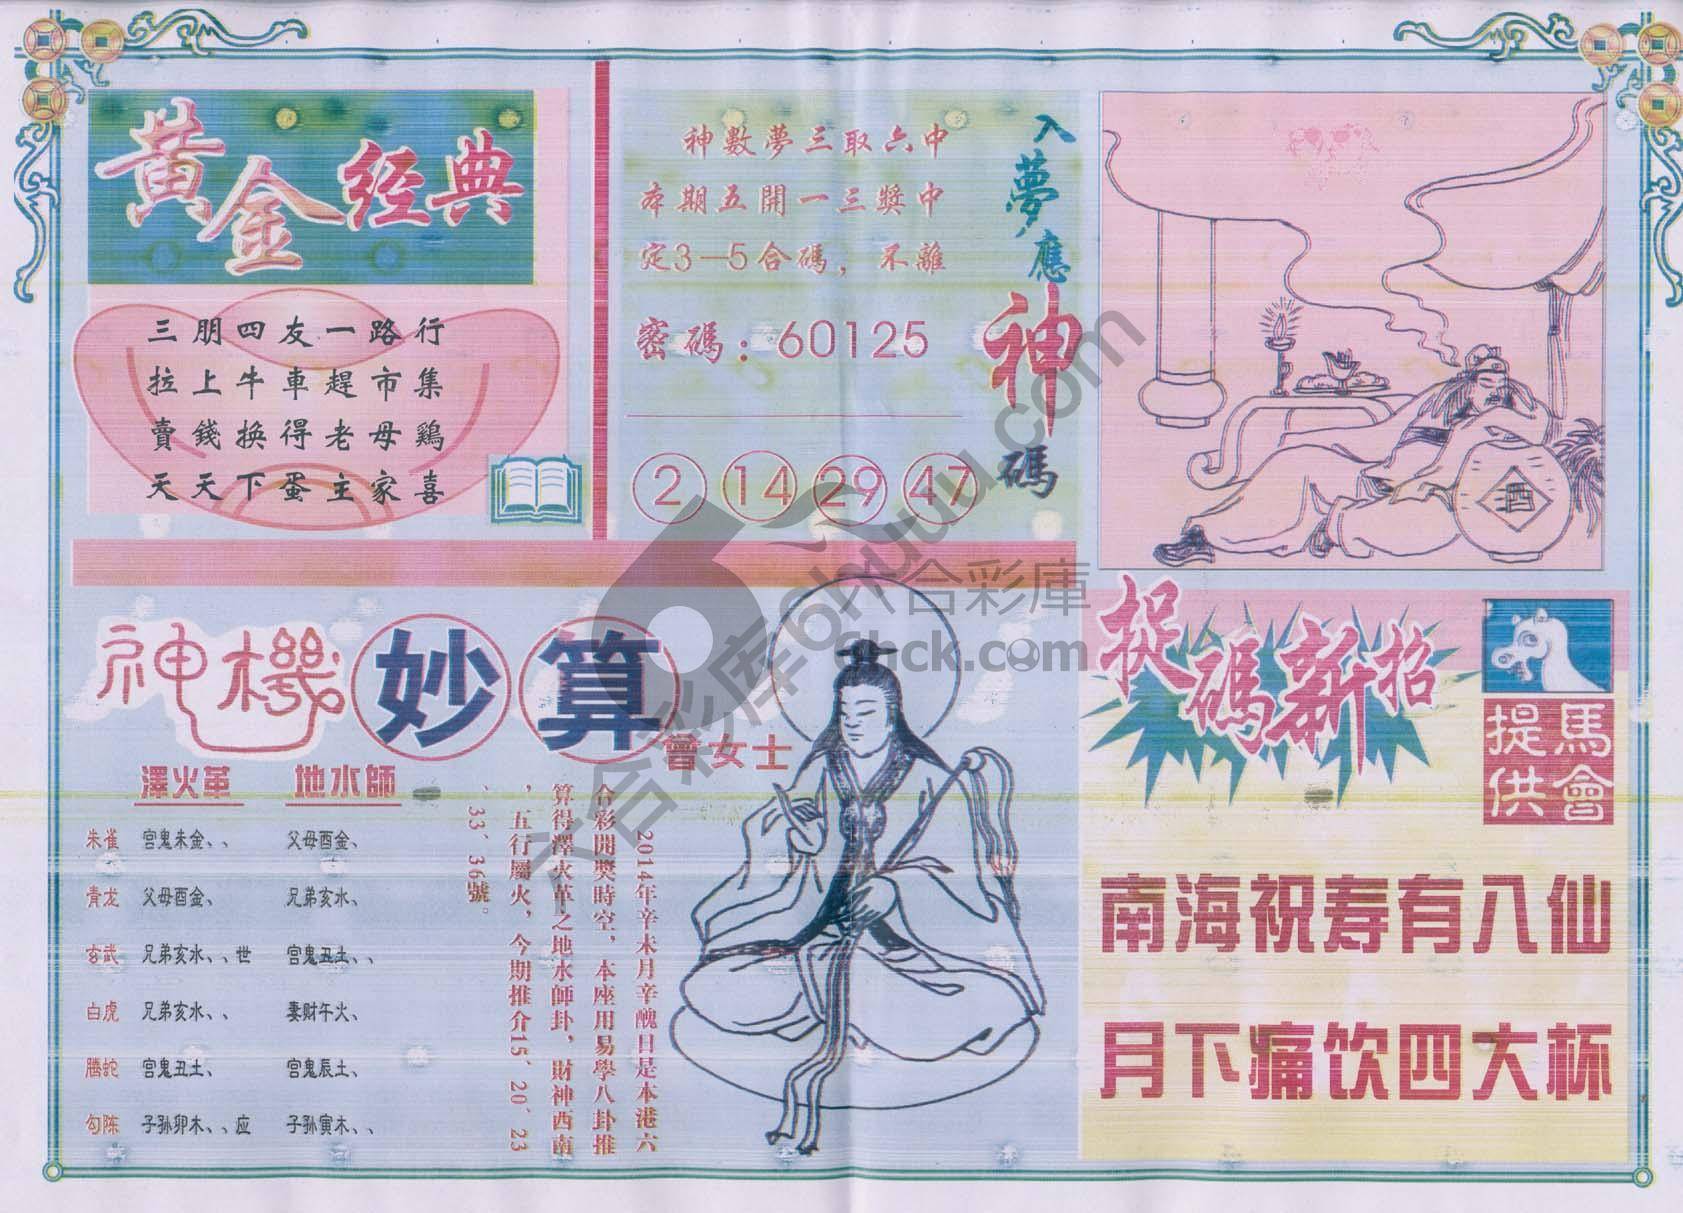 黃金经典
三朋四友一路行
拉上牛車趕市集
賣錢换得老母鷄
天天下蛋主家喜
神數夢三取六中
本期五開一三獎中
定3—5合碼，不離
密碼：60125
2 14 29 47
入夢應神碼
酒
六合彩库6huuu.com
六合彩庫
6hck.com
神機妙算
曾女士
澤火革 地水師
朱雀 官鬼未金、、 父母酉金、
青龙 父母酉金、 兄弟亥水、
玄武 兄弟亥水、、世 官鬼丑土、、
白虎 兄弟亥水、、 妻财午火、
騰蛇 官鬼丑土、 官鬼辰土、
勾陈 子孙卯木、、应 子孙寅木、、
2014年辛未月辛醜日是本港六
合彩開獎時空，本座用易學八卦推
算得澤火革之地水師卦，財神西南
，五行屬火，今期推介15、20、23
、33、36號。
捉碼新招
馬會
提供
南海祝寿有八仙
月下痛饮四大杯